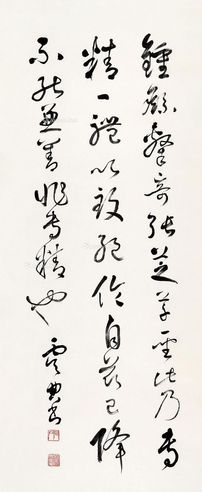 鍾繇隸奇張芝草聖此乃專
精一體以致絕倫自茲已降
不能兼善非專精也